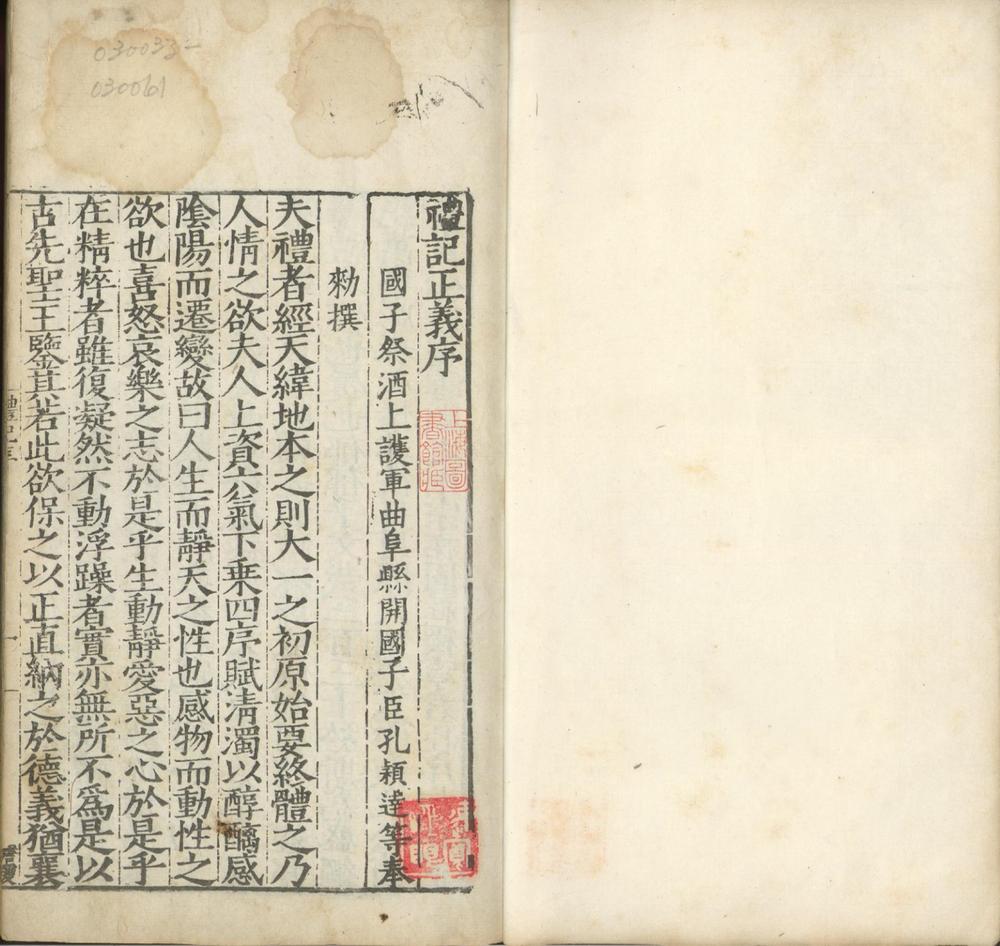 禮記正義序
國子祭酒上護軍曲阜縣開國子臣孔穎達等奉
勑撰
夫禮者經天緯地本之則大一之初原始要終體之乃
人情之欲夫人上資六氣下乗四序賦清濁以醇醨感
陰陽而遷變故曰人生而靜天之性也感物而動性之
欲也喜怒哀樂之志於是乎生動靜愛惡之心於是乎
在精粹者雖復凝然不動浮躁者實亦無所不爲是以
古先聖王鑒其若此欲保之以正直納之於德義猶襄
上海圖書館藏
030033
030061